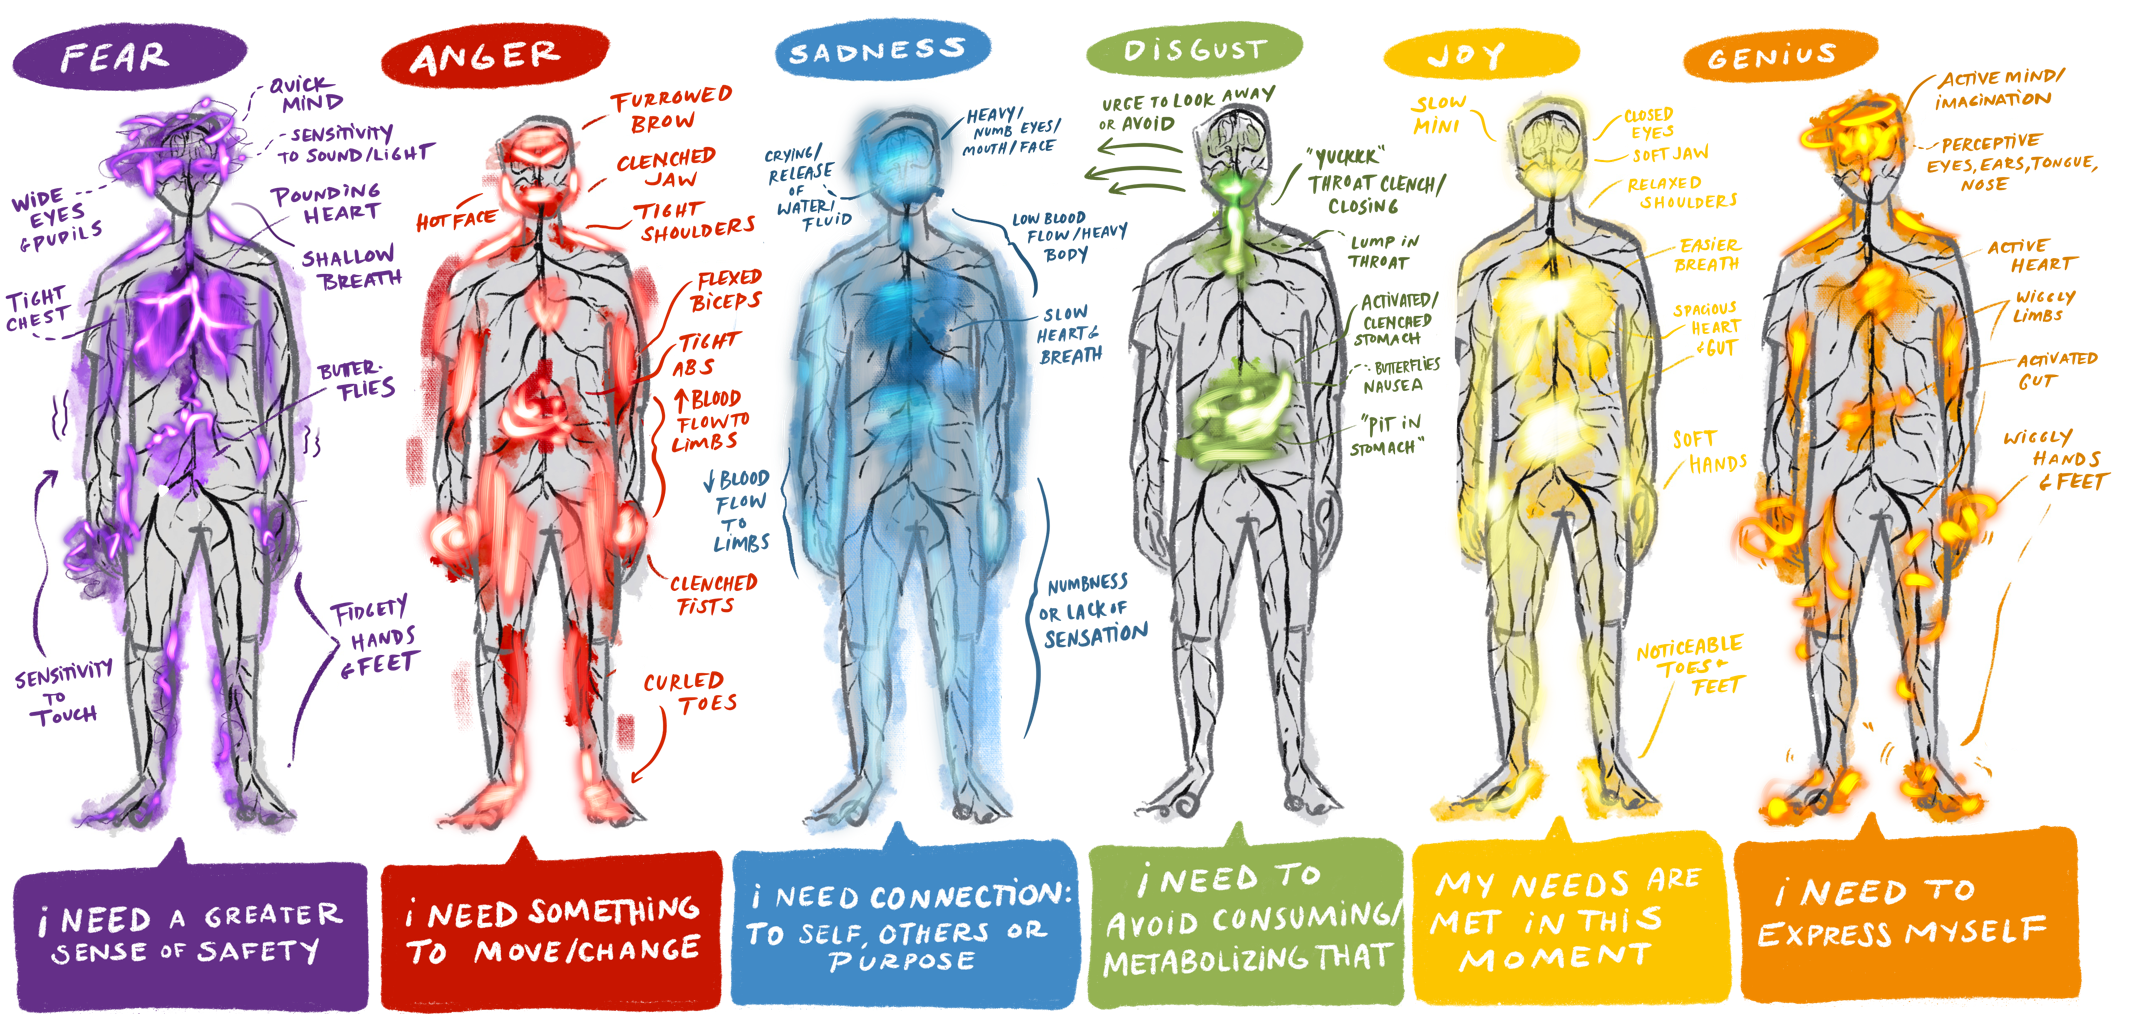 FEAR
QUICK
MIND
SENSITIVITY
TO SOUND/LIGHT
WIDE
EYES
& PUPILS
POUNDING
HEART
SHALLOW
BREATH
TIGHT
CHEST
BUTTER-
FLIES
SENSITIVITY
TO
TOUCH
FIDGETY
HANDS
& FEET
i NEED A GREATER
SENSE OF SAFETY
ANGER
FURROWED
BROW
CLENCHED
JAW
HOT FACE
TIGHT
SHOULDERS
FLEXED
BICEPS
TIGHT
ABS
↑ BLOOD
FLOW TO
LIMBS
CLENCHED
FISTS
CURLED
TOES
i NEED SOMETHING
TO MOVE/CHANGE
SADNESS
HEAVY/
NUMB EYES/
MOUTH/FACE
CRYING/
RELEASE
OF
WATER/
FLUID
LOW BLOOD
FLOW/HEAVY
BODY
SLOW
HEART &
BREATH
↓ BLOOD
FLOW
TO
LIMBS
NUMBNESS
OR LACK OF
SENSATION
i NEED CONNECTION:
TO SELF, OTHERS OR
PURPOSE
DISGUST
URGE TO LOOK AWAY
OR AVOID
"YUCKKK"
THROAT CLENCH/
CLOSING
LUMP IN
THROAT
ACTIVATED/
CLENCHED
STOMACH
BUTTERFLIES
NAUSEA
"PIT IN
STOMACH"
i NEED TO
AVOID CONSUMING/
METABOLIZING THAT
JOY
SLOW
MINI
CLOSED
EYES
SOFT JAW
RELAXED
SHOULDERS
EASIER
BREATH
SPACIOUS
HEART
& GUT
SOFT
HANDS
NOTICEABLE
TOES &
FEET
MY NEEDS ARE
MET IN THIS
MOMENT
GENIUS
ACTIVE MIND/
IMAGINATION
PERCEPTIVE
EYES, EARS, TONGUE,
NOSE
ACTIVE
HEART
WIGGLY
LIMBS
ACTIVATED
GUT
WIGGLY
HANDS
& FEET
i NEED TO
EXPRESS MYSELF